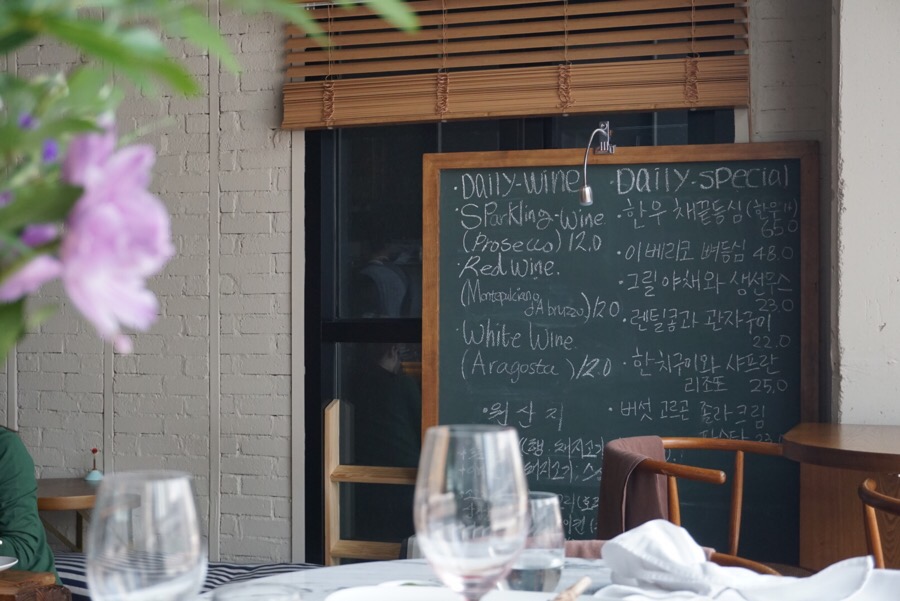 ·Daily-wine
·Sparkling-wine.
(Prosecco) 12.0
Red wine.
(Montepulciano
d'Abruzzo)/12.0
White Wine.
(Aragosta )/12.0
·원산지
·Daily-special
·한우 채끝등심(한우++)
65.0
·이베리코 뼈등심 48.0
·그릴 야채와 생선무스
23.0
·렌틸콩과 관자구이
22.0
·한치구이와 샤프란
리조또 25.0
·버섯 고르곤 졸라크림
파스타 23.0